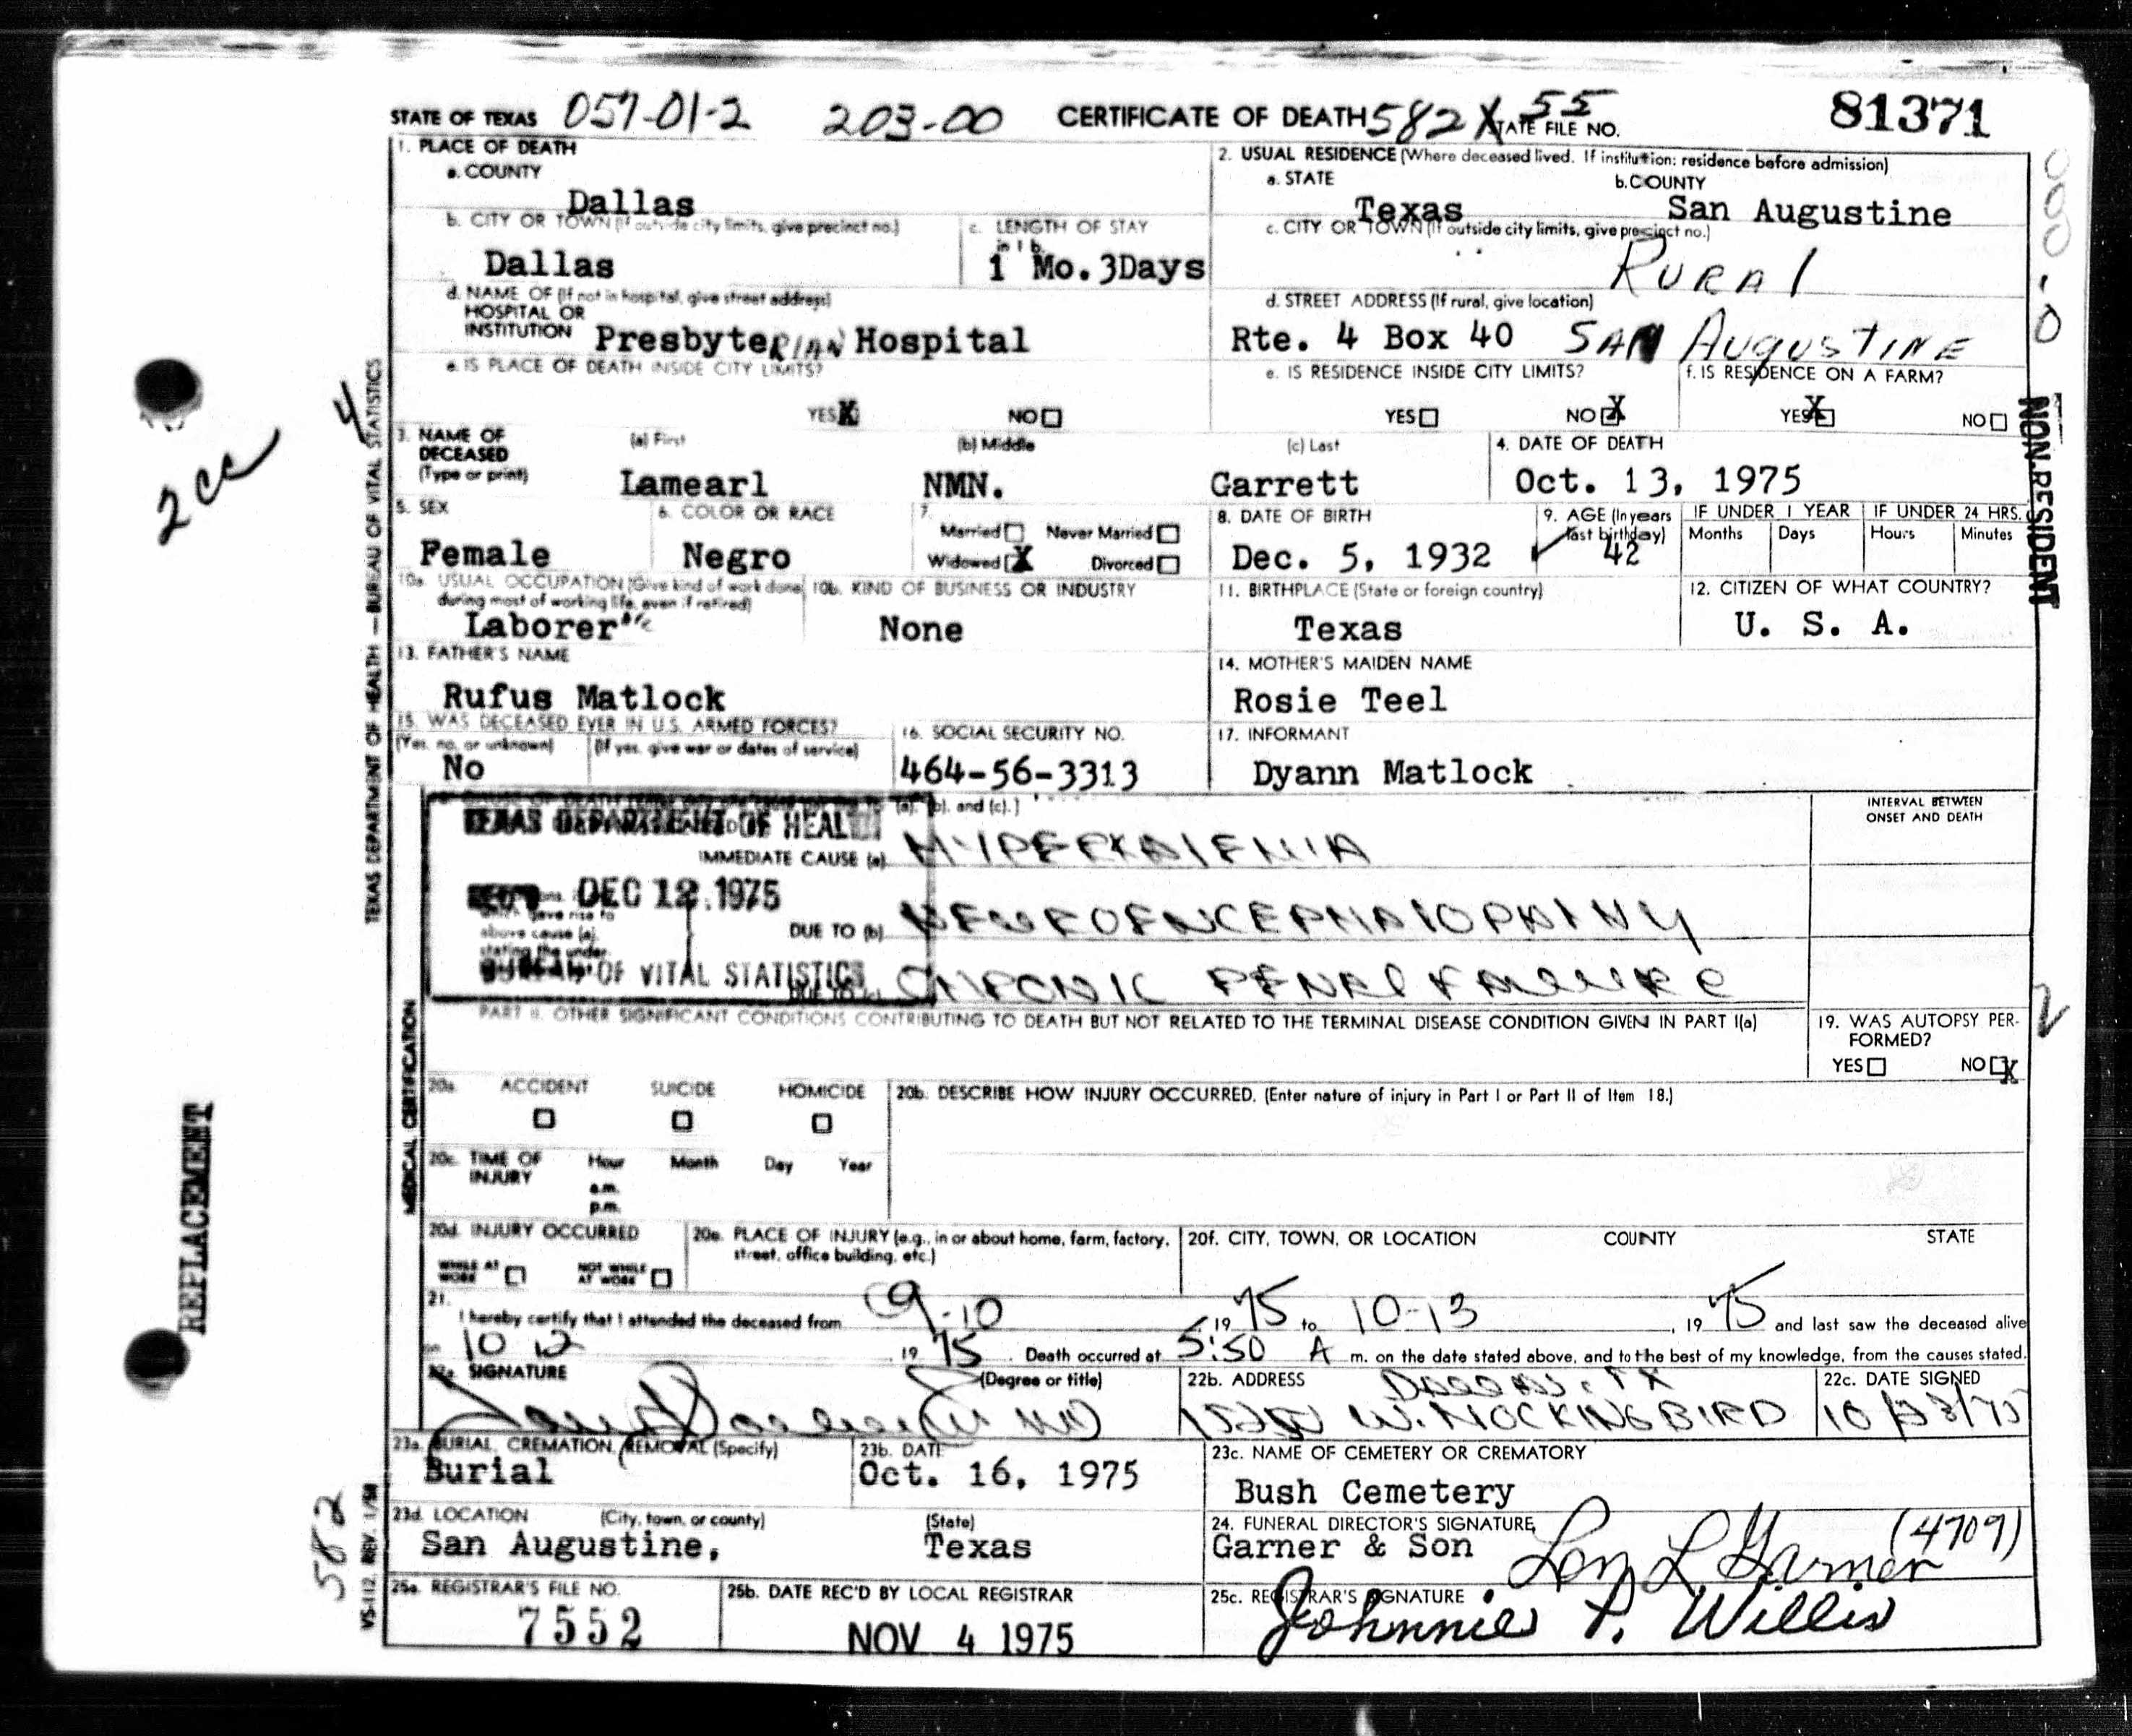 STATE OF TEXAS 057-01-2 203-00 CERTIFICATE OF DEATH 582X 55 STATE FILE NO. 81371
1. PLACE OF DEATH
a. COUNTY
Dallas
2. USUAL RESIDENCE (Where deceased lived. If institution: residence before admission)
a. STATE b. COUNTY
Texas San Augustine
b. CITY OR TOWN (If outside city limits, give precinct no.) c. LENGTH OF STAY in 1 b.
Dallas 1 Mo. 3Days
c. CITY OR TOWN (If outside city limits, give precinct no.)
RURAL
d. NAME OF (If not in hospital, give street address)
HOSPITAL OR
INSTITUTION Presbyterian Hospital
d. STREET ADDRESS (If rural, give location)
Rte. 4 Box 40 SAN AUGUSTINE
e. IS PLACE OF DEATH INSIDE CITY LIMITS?
YES X NO
e. IS RESIDENCE INSIDE CITY LIMITS? f. IS RESIDENCE ON A FARM?
YES NO X YES X NO
3. NAME OF DECEASED (Type or print) (a) First (b) Middle (c) Last 4. DATE OF DEATH
Lamearl NMN. Garrett Oct. 13, 1975
5. SEX 6. COLOR OR RACE 7. Married Never Married Widowed X Divorced
Female Negro
8. DATE OF BIRTH 9. AGE (In years last birthday) IF UNDER 1 YEAR IF UNDER 24 HRS.
Months Days Hours Minutes
Dec. 5, 1932 42
10a. USUAL OCCUPATION (Give kind of work done during most of working life, even if retired) 10b. KIND OF BUSINESS OR INDUSTRY
Laborer None
11. BIRTHPLACE (State or foreign country) 12. CITIZEN OF WHAT COUNTRY?
Texas U. S. A.
13. FATHER'S NAME 14. MOTHER'S MAIDEN NAME
Rufus Matlock Rosie Teel
15. WAS DECEASED EVER IN U.S. ARMED FORCES? 16. SOCIAL SECURITY NO. 17. INFORMANT
(Yes, no, or unknown) (If yes, give war or dates of service)
No 464-56-3313 Dyann Matlock
(a), (b), and (c).] INTERVAL BETWEEN
ONSET AND DEATH
TEXAS DEPARTMENT OF HEALTH
IMMEDIATE CAUSE (a) HYPERKALEMIA
DEC 12 1975
which gave rise to
above cause (a),
stating the under-
DUE TO (b) NEUROENCEPHALOPATHY
BUREAU OF VITAL STATISTICS
DUE TO (c) CHRONIC RENAL FAILURE
PART II. OTHER SIGNIFICANT CONDITIONS CONTRIBUTING TO DEATH BUT NOT RELATED TO THE TERMINAL DISEASE CONDITION GIVEN IN PART I(a)
19. WAS AUTOPSY PER-
FORMED?
YES NO X
20a. ACCIDENT SUICIDE HOMICIDE 20b. DESCRIBE HOW INJURY OCCURRED. (Enter nature of injury in Part I or Part II of Item 18.)
20c. TIME OF INJURY Hour Month Day Year
a.m.
p.m.
20d. INJURY OCCURRED 20e. PLACE OF INJURY (e.g., in or about home, farm, factory, street, office building, etc.) 20f. CITY, TOWN, OR LOCATION COUNTY STATE
WHILE AT WORK NOT WHILE AT WORK
21.
I hereby certify that I attended the deceased from 9-10, 19 75 to 10-13, 19 75 and last saw the deceased alive
on 10 12, 19 75. Death occurred at 5:50 A m. on the date stated above, and to the best of my knowledge, from the causes stated.
22a. SIGNATURE (Degree or title) 22b. ADDRESS DALLAS, TX 22c. DATE SIGNED
MD W. MOCKINGBIRD 10/23/75
23a. BURIAL, CREMATION, REMOVAL (Specify) 23b. DATE 23c. NAME OF CEMETERY OR CREMATORY
Burial Oct. 16, 1975 Bush Cemetery
23d. LOCATION (City, town, or county) (State) 24. FUNERAL DIRECTOR'S SIGNATURE
San Augustine, Texas Garner & Son Lon L Garner (4709)
25a. REGISTRAR'S FILE NO. 25b. DATE REC'D BY LOCAL REGISTRAR 25c. REGISTRAR'S SIGNATURE
7552 NOV 4 1975 Johnnie P. Willis
TEXAS DEPARTMENT OF HEALTH — BUREAU OF VITAL STATISTICS
MEDICAL CERTIFICATION
VS-112, REV. 1/58
582
4
2cc
REPLACEMENT
NON-RESIDENT
2